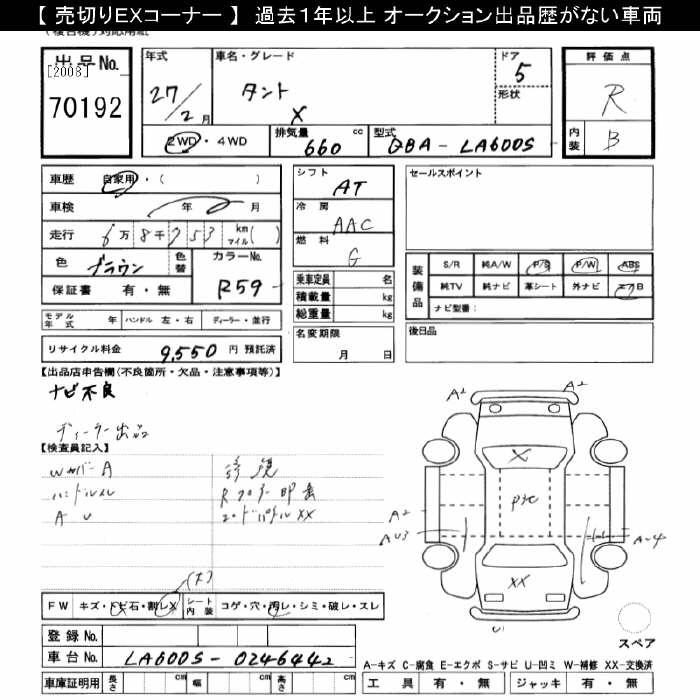 【 売切りEXコーナー 】 過去１年以上 オークション出品歴がない車両
出品No.
[2008]
70192
年式
27/2月
車名・グレード
タント
X
ドア
5
形状
評価点
R
内装
B
2WD・4WD
排気量
660 cc
型式
DBA - LA600S
車歴 自家用・( )
車検 年 月
走行 6万8千753 km マイル( )
色 ブラウン 色替
カラーNo.
R59
保証書 有・無
シフト
AT
冷房
AAC
燃料
G
乗車定員 名
積載量 kg
総重量 kg
名変期限
月 日
セールスポイント
装備品
S/R 純A/W P/S P/W ABS
純TV 純ナビ 革シート 外ナビ エアB
ナビ型番：
後日品
モデル年式 年 ハンドル 左・右 ディーラー・並行
リサイクル料金 9,550 円 預託済
【出品店申告欄(不良箇所・欠品・注意事項等)】
ナビ不良
ディーラー出品
【検査員記入】
Wカバー A
ハンドルスレ
A U
修復
XX
A2
A2
XX
A2
AU3
A-4
U
FW キズ・トビ石・割レX (大)
シート内装 コゲ・穴・汚レ・シミ・破レ・スレ
スペア
登録No.
車台No. LA600S - 0246442
車庫証明用 長さ cm 幅 cm 高さ cm
A-キズ C-腐食 E-エクボ S-サビ U-凹ミ W-補修 XX-交換済
工具 有・無 ジャッキ 有・無